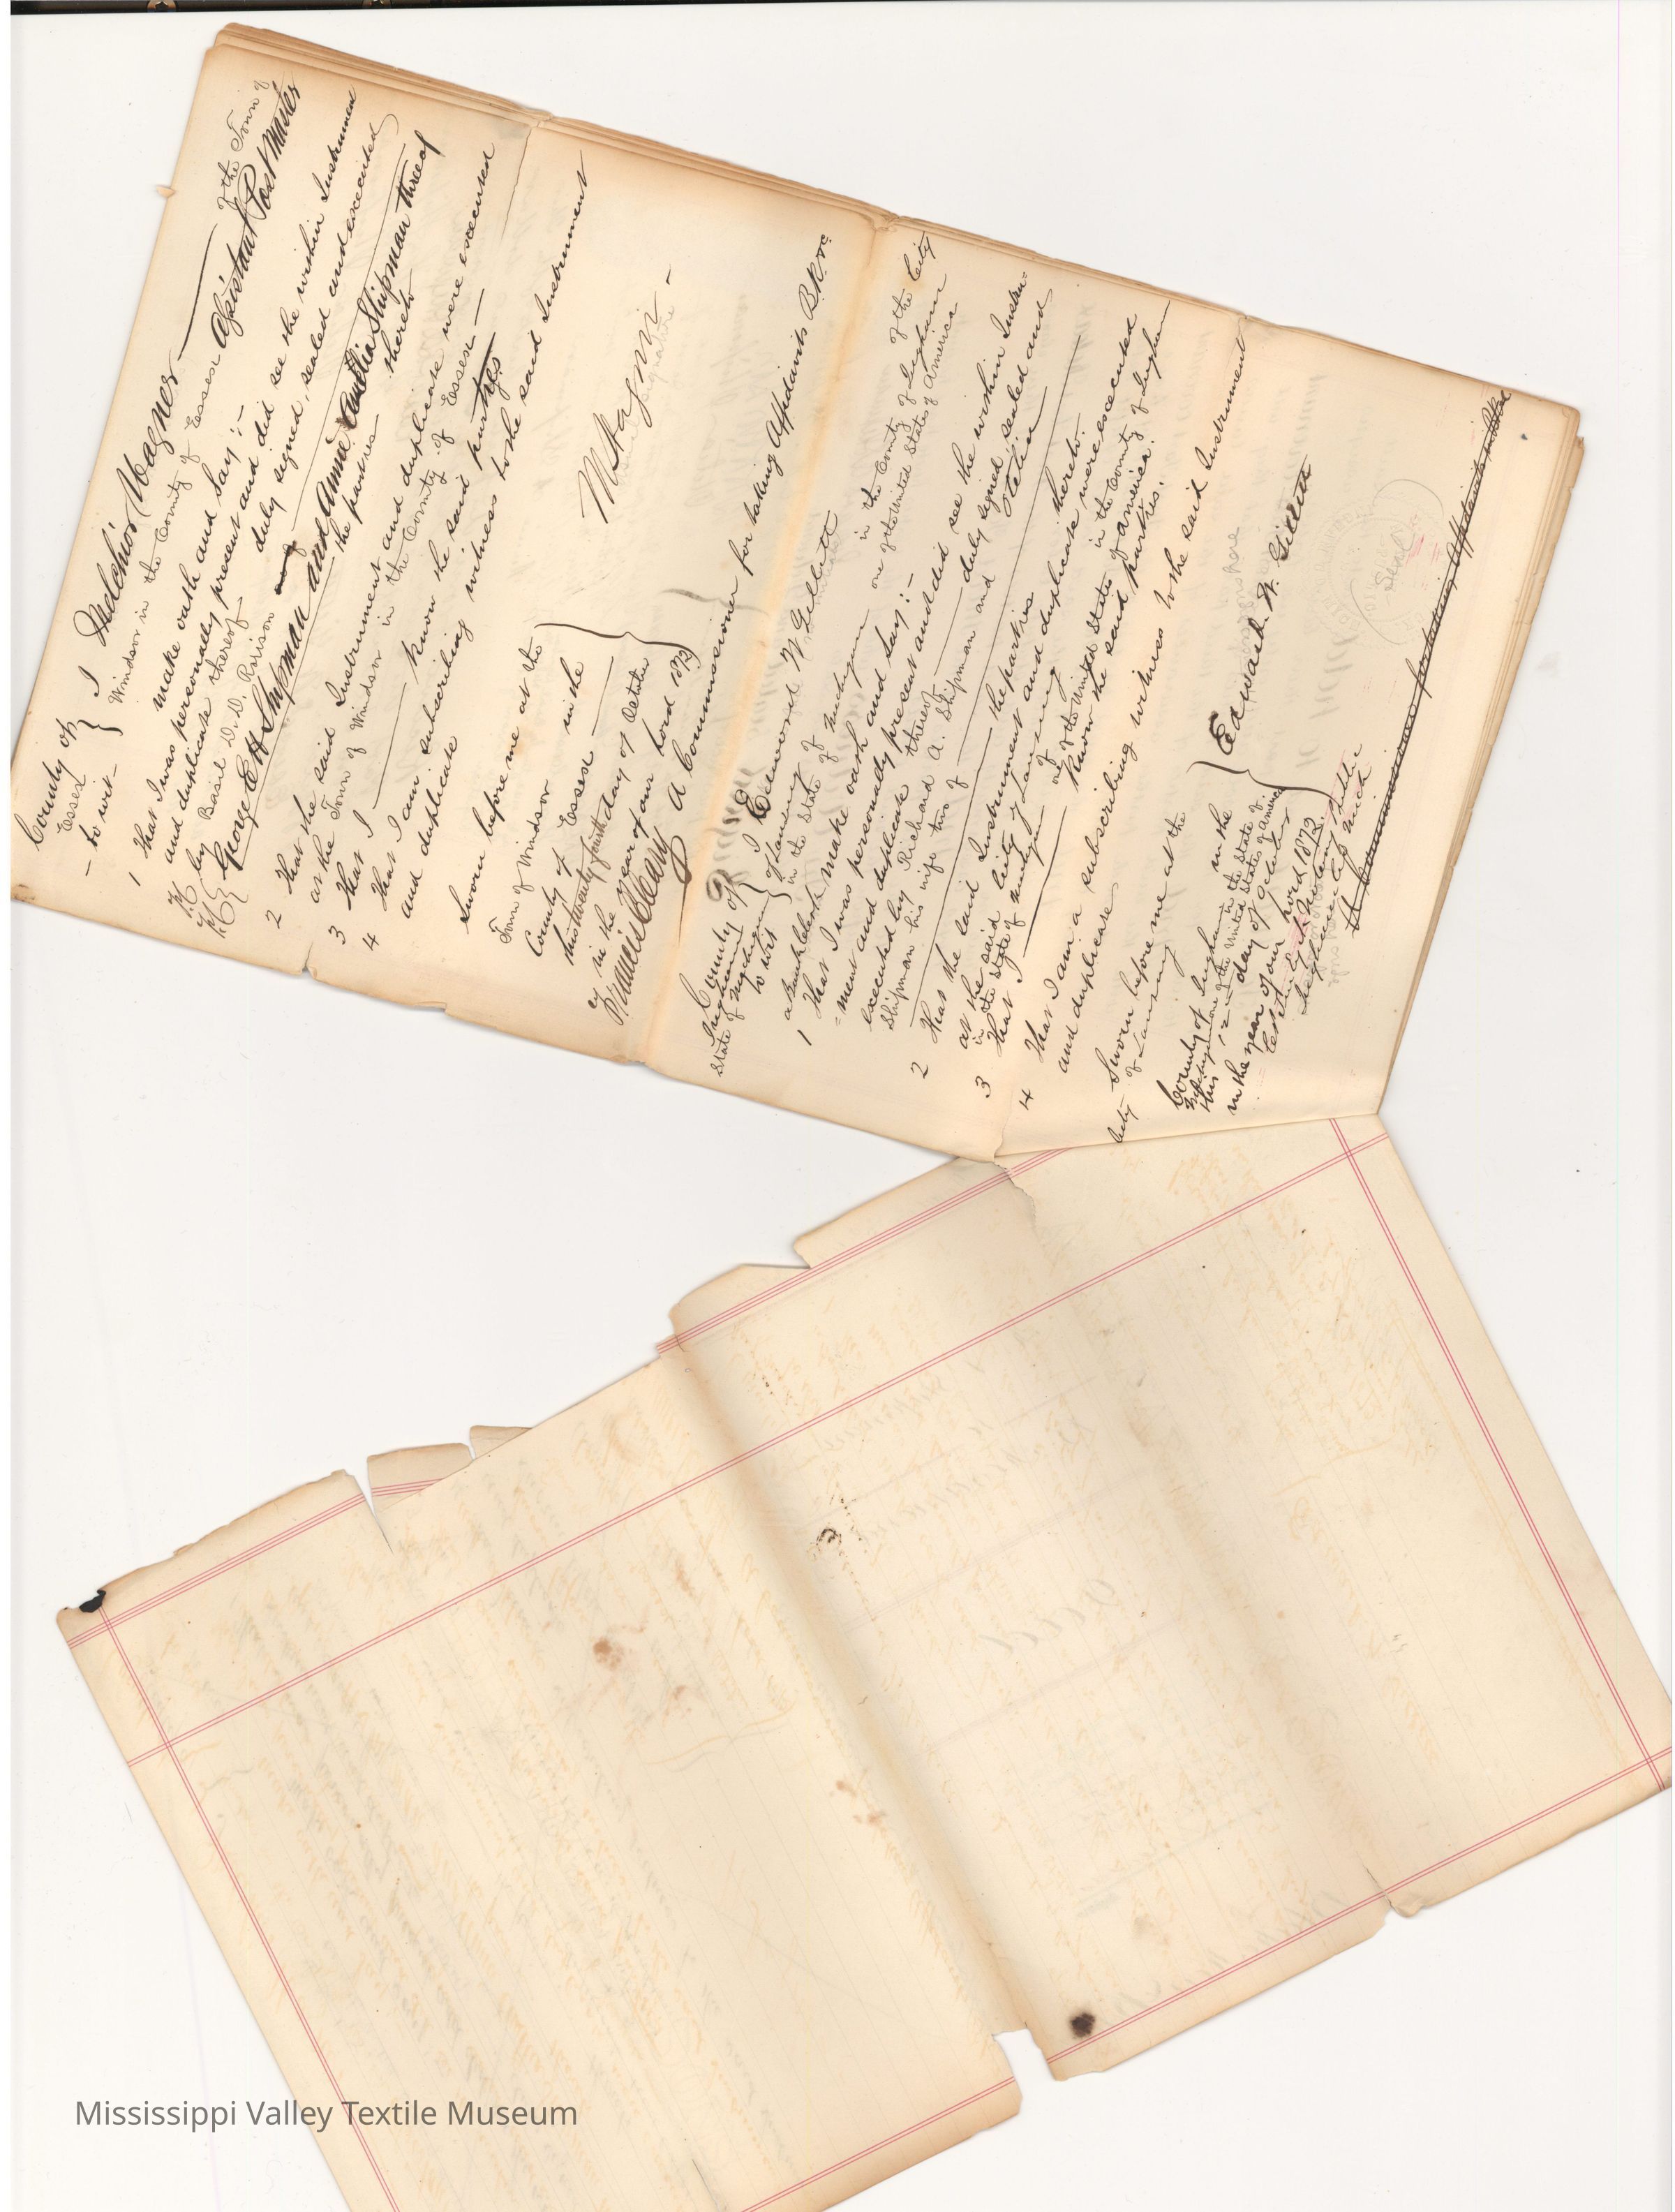 County of
Essex
- to wit -
I Melchior Wagner of the Town of
Windsor in the County of Essex Assistant Post Master
make oath and say :-
1 That I was personally present and did see the within Instrument
and duplicate thereof duly signed, sealed and executed
by Basil D. D. Rorison
George E H Shipman and Anna Amelia Shipman three of
the parties thereto
2 That the said Instrument and duplicate were executed
at the Town of Windsor in the County of Essex -
3 That I know the said parties
4 That I am subscribing witness to the said Instrument
and duplicate
Sworn before me at the
Town of Windsor in the
County of Essex
this twenty fourth day of October
in the year of our Lord 1873
A Commissioner for taking Affidavits B.R. &c
County of
Ingham
State of Michigan
to wit
I Edward W. Gillett of the City
of Lansing in the County of Ingham
in the State of Michigan one of the United States of America
a Bank Clerk make oath and say :-
1 That I was personally present and did see the within Instru-
-ment and duplicate thereof duly signed, sealed and
executed by Richard A. Shipman and
Shipman his wife two of the parties thereto.
2 That the said Instrument and duplicate were executed
at the said City of Lansing in the County of Ingham
in the State of Michigan one of the United States of America.
3 That I know the said parties.
4 That I am a subscribing witness to the said Instrument
and duplicate
Sworn before me at the City
of Lansing in the
County of Ingham in the State of
Michigan one of the United States of America
this 12 day of October
in the year of our Lord 1873
Edward W. Gillett
Notary Public
Seal
A Commissioner for taking Affidavits
Mississippi Valley Textile Museum